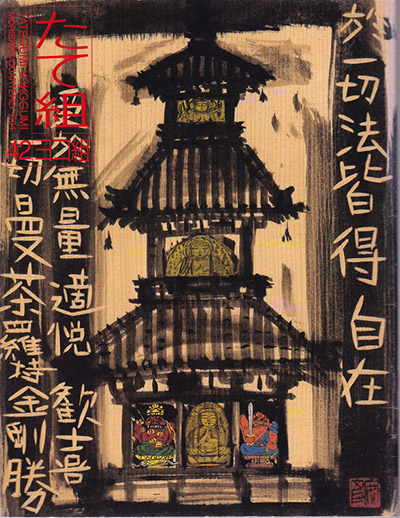 たて組
ヨコ組
TATEGUMI YOKOGUMI
42
於一切法皆得自在
無量適悦歓喜
切曼荼羅持金剛勝